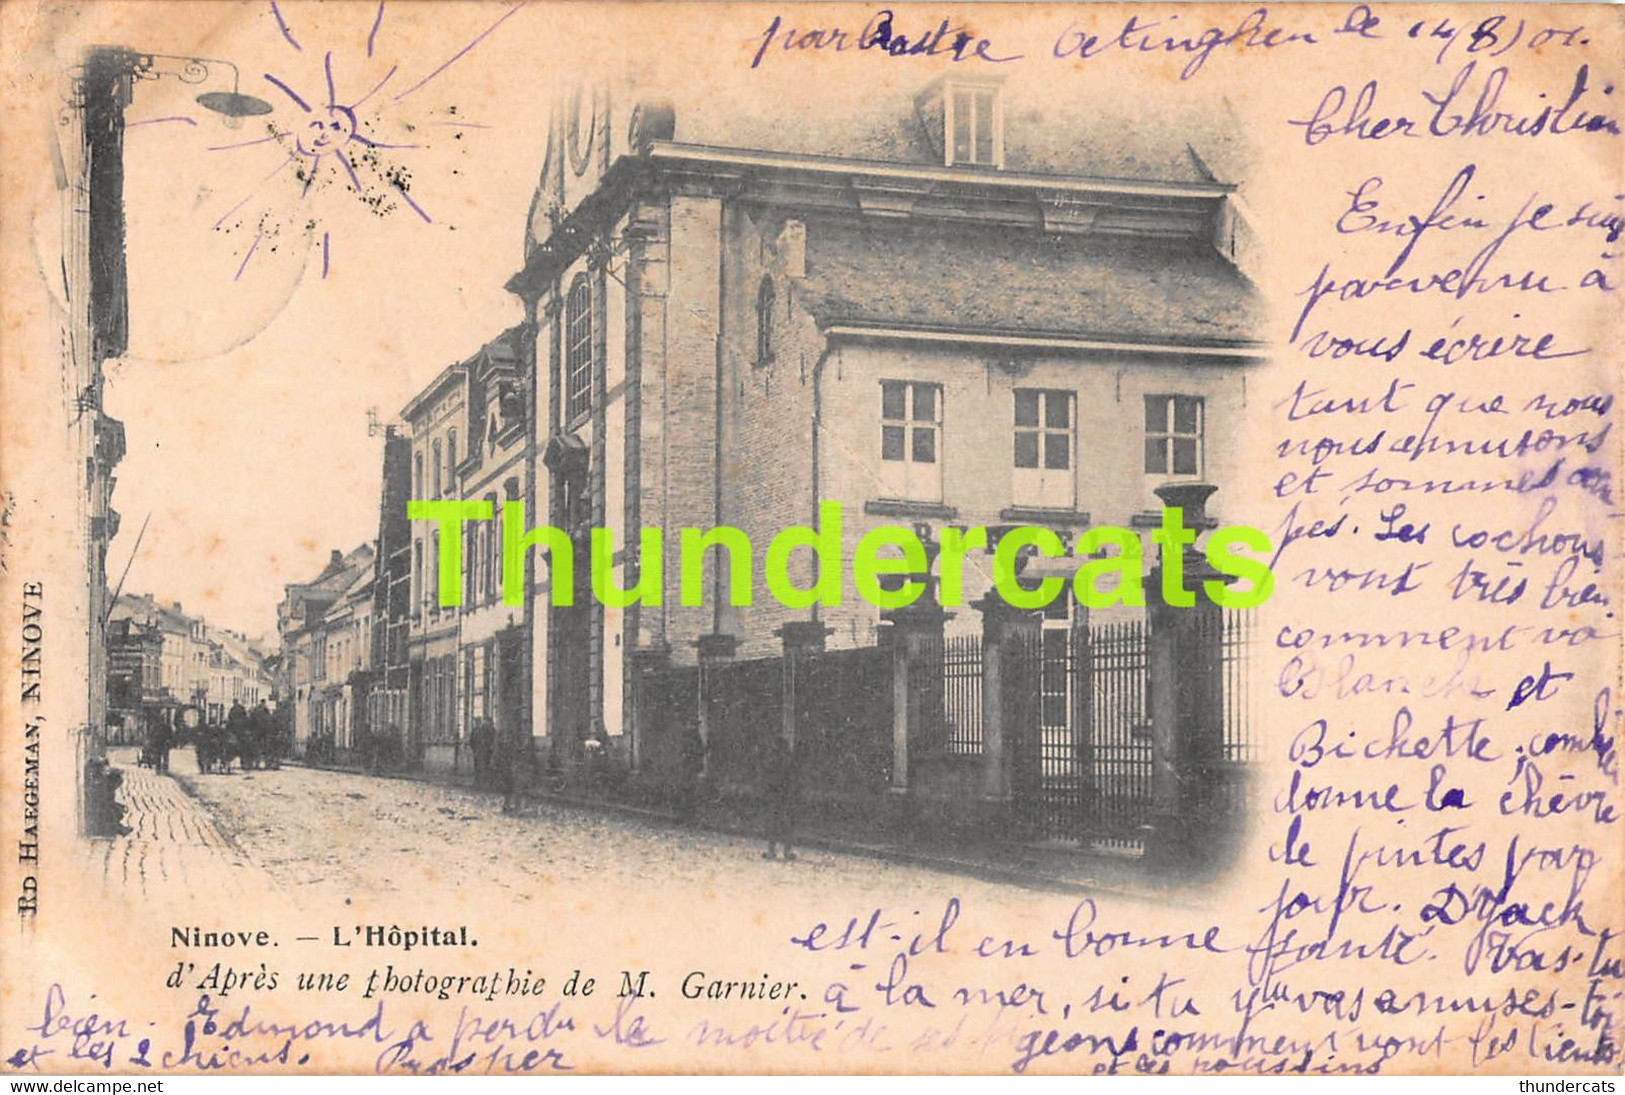 par Oetinghen le 14/8/01.
Cher Christian
Enfin je suis
parvenu à
vous écrire
tant que nous
nous amusons
et sommes
Les cochons
vont très bien.
comment va
Blanche et
Bichette, combien
donne la chèvre
de pintes par
jour. Jack
est-il en bonne santé. Vas-tu
à la mer, si tu y vas amuses-toi
bien. Edmond a perdu la moitié de ses pigeons comment vont les tiens
et les 2 chiens. Prosper et les poussins
RD HAEGEMAN, NINOVE
Ninove. — L'Hôpital.
d'Après une photographie de M. Garnier.
Thundercats
thundercats
www.delcampe.net